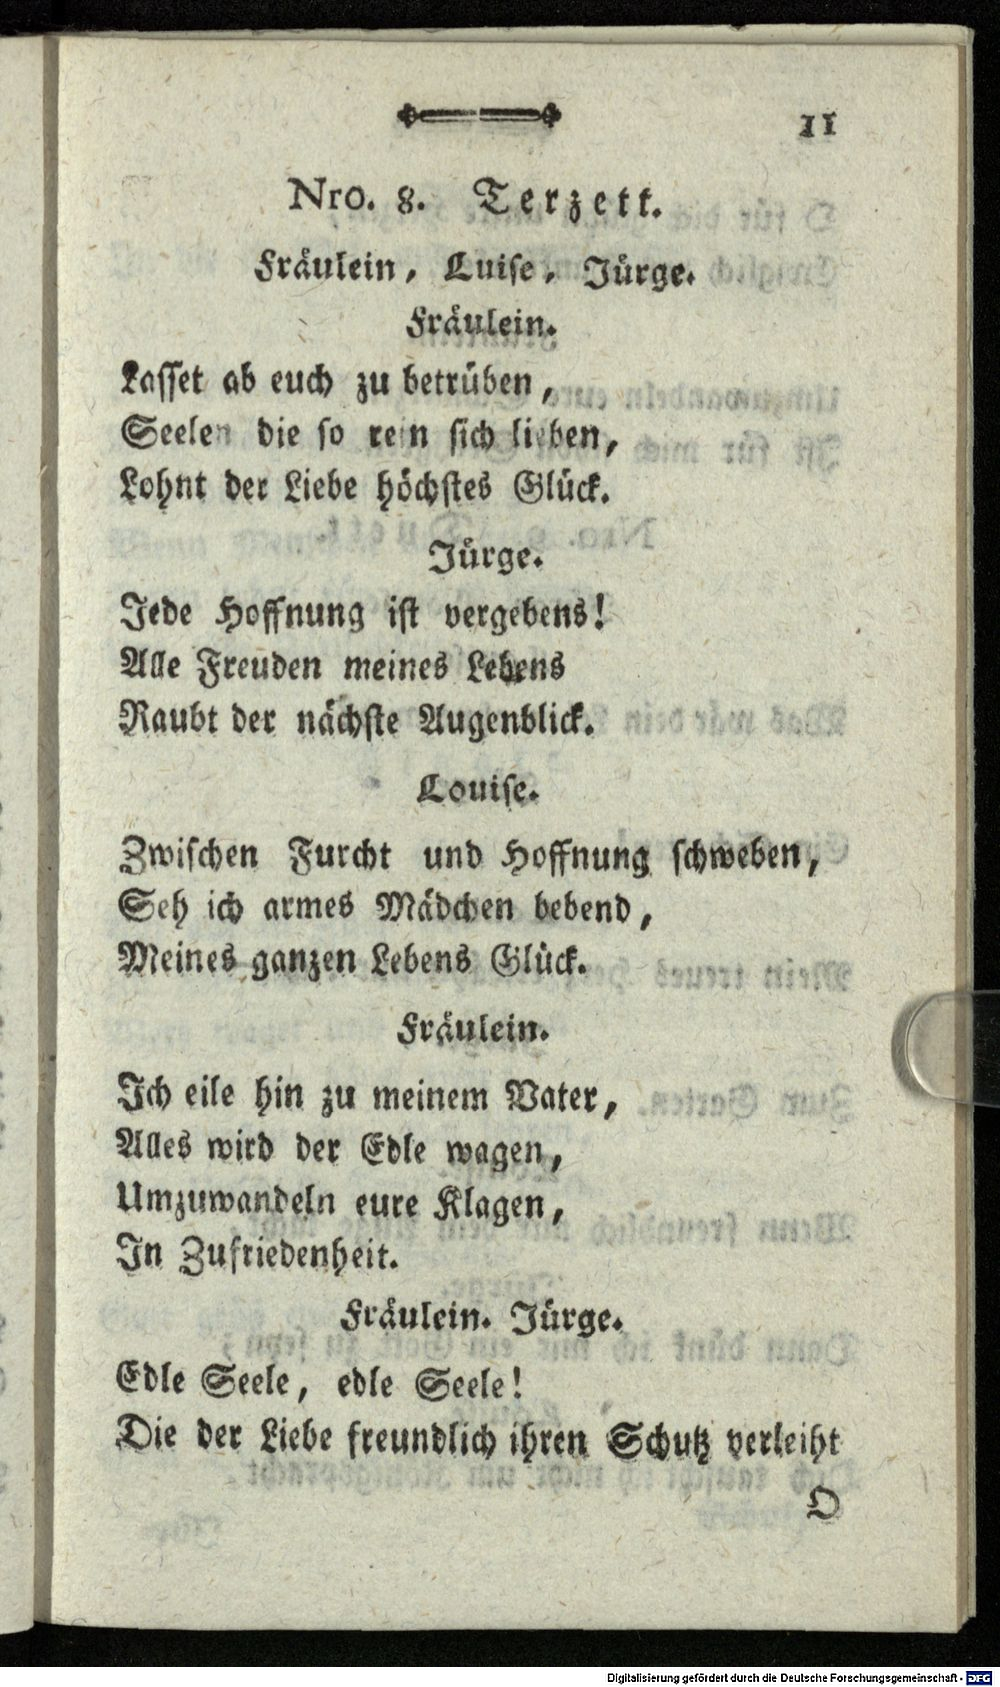 11
Nro. 8. Terzett.
Fräulein, Luise, Jürge.
Fräulein.
Lasset ab euch zu betrüben,
Seelen die so rein sich lieben,
Lohnt der Liebe höchstes Glück.
Jürge.
Jede Hoffnung ist vergebens!
Alle Freuden meines Lebens
Raubt der nächste Augenblick.
Louise.
Zwischen Furcht und Hoffnung schweben,
Seh ich armes Mädchen bebend,
Meines ganzen Lebens Glück.
Fräulein.
Ich eile hin zu meinem Vater,
Alles wird der Edle wagen,
Umzuwandeln eure Klagen,
In Zufriedenheit.
Fräulein. Jürge.
Edle Seele, edle Seele!
Die der Liebe freundlich ihren Schutz verleiht
O
Digitalisierung gefördert durch die Deutsche Forschungsgemeinschaft - DFG